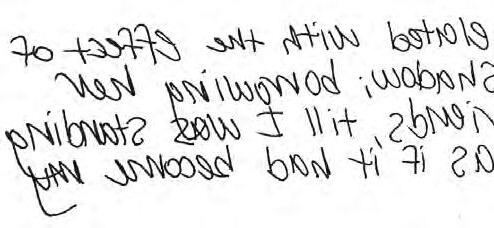 elated with the effect of
shadow; borrowing her
riends, till I was standing
as if it had become my